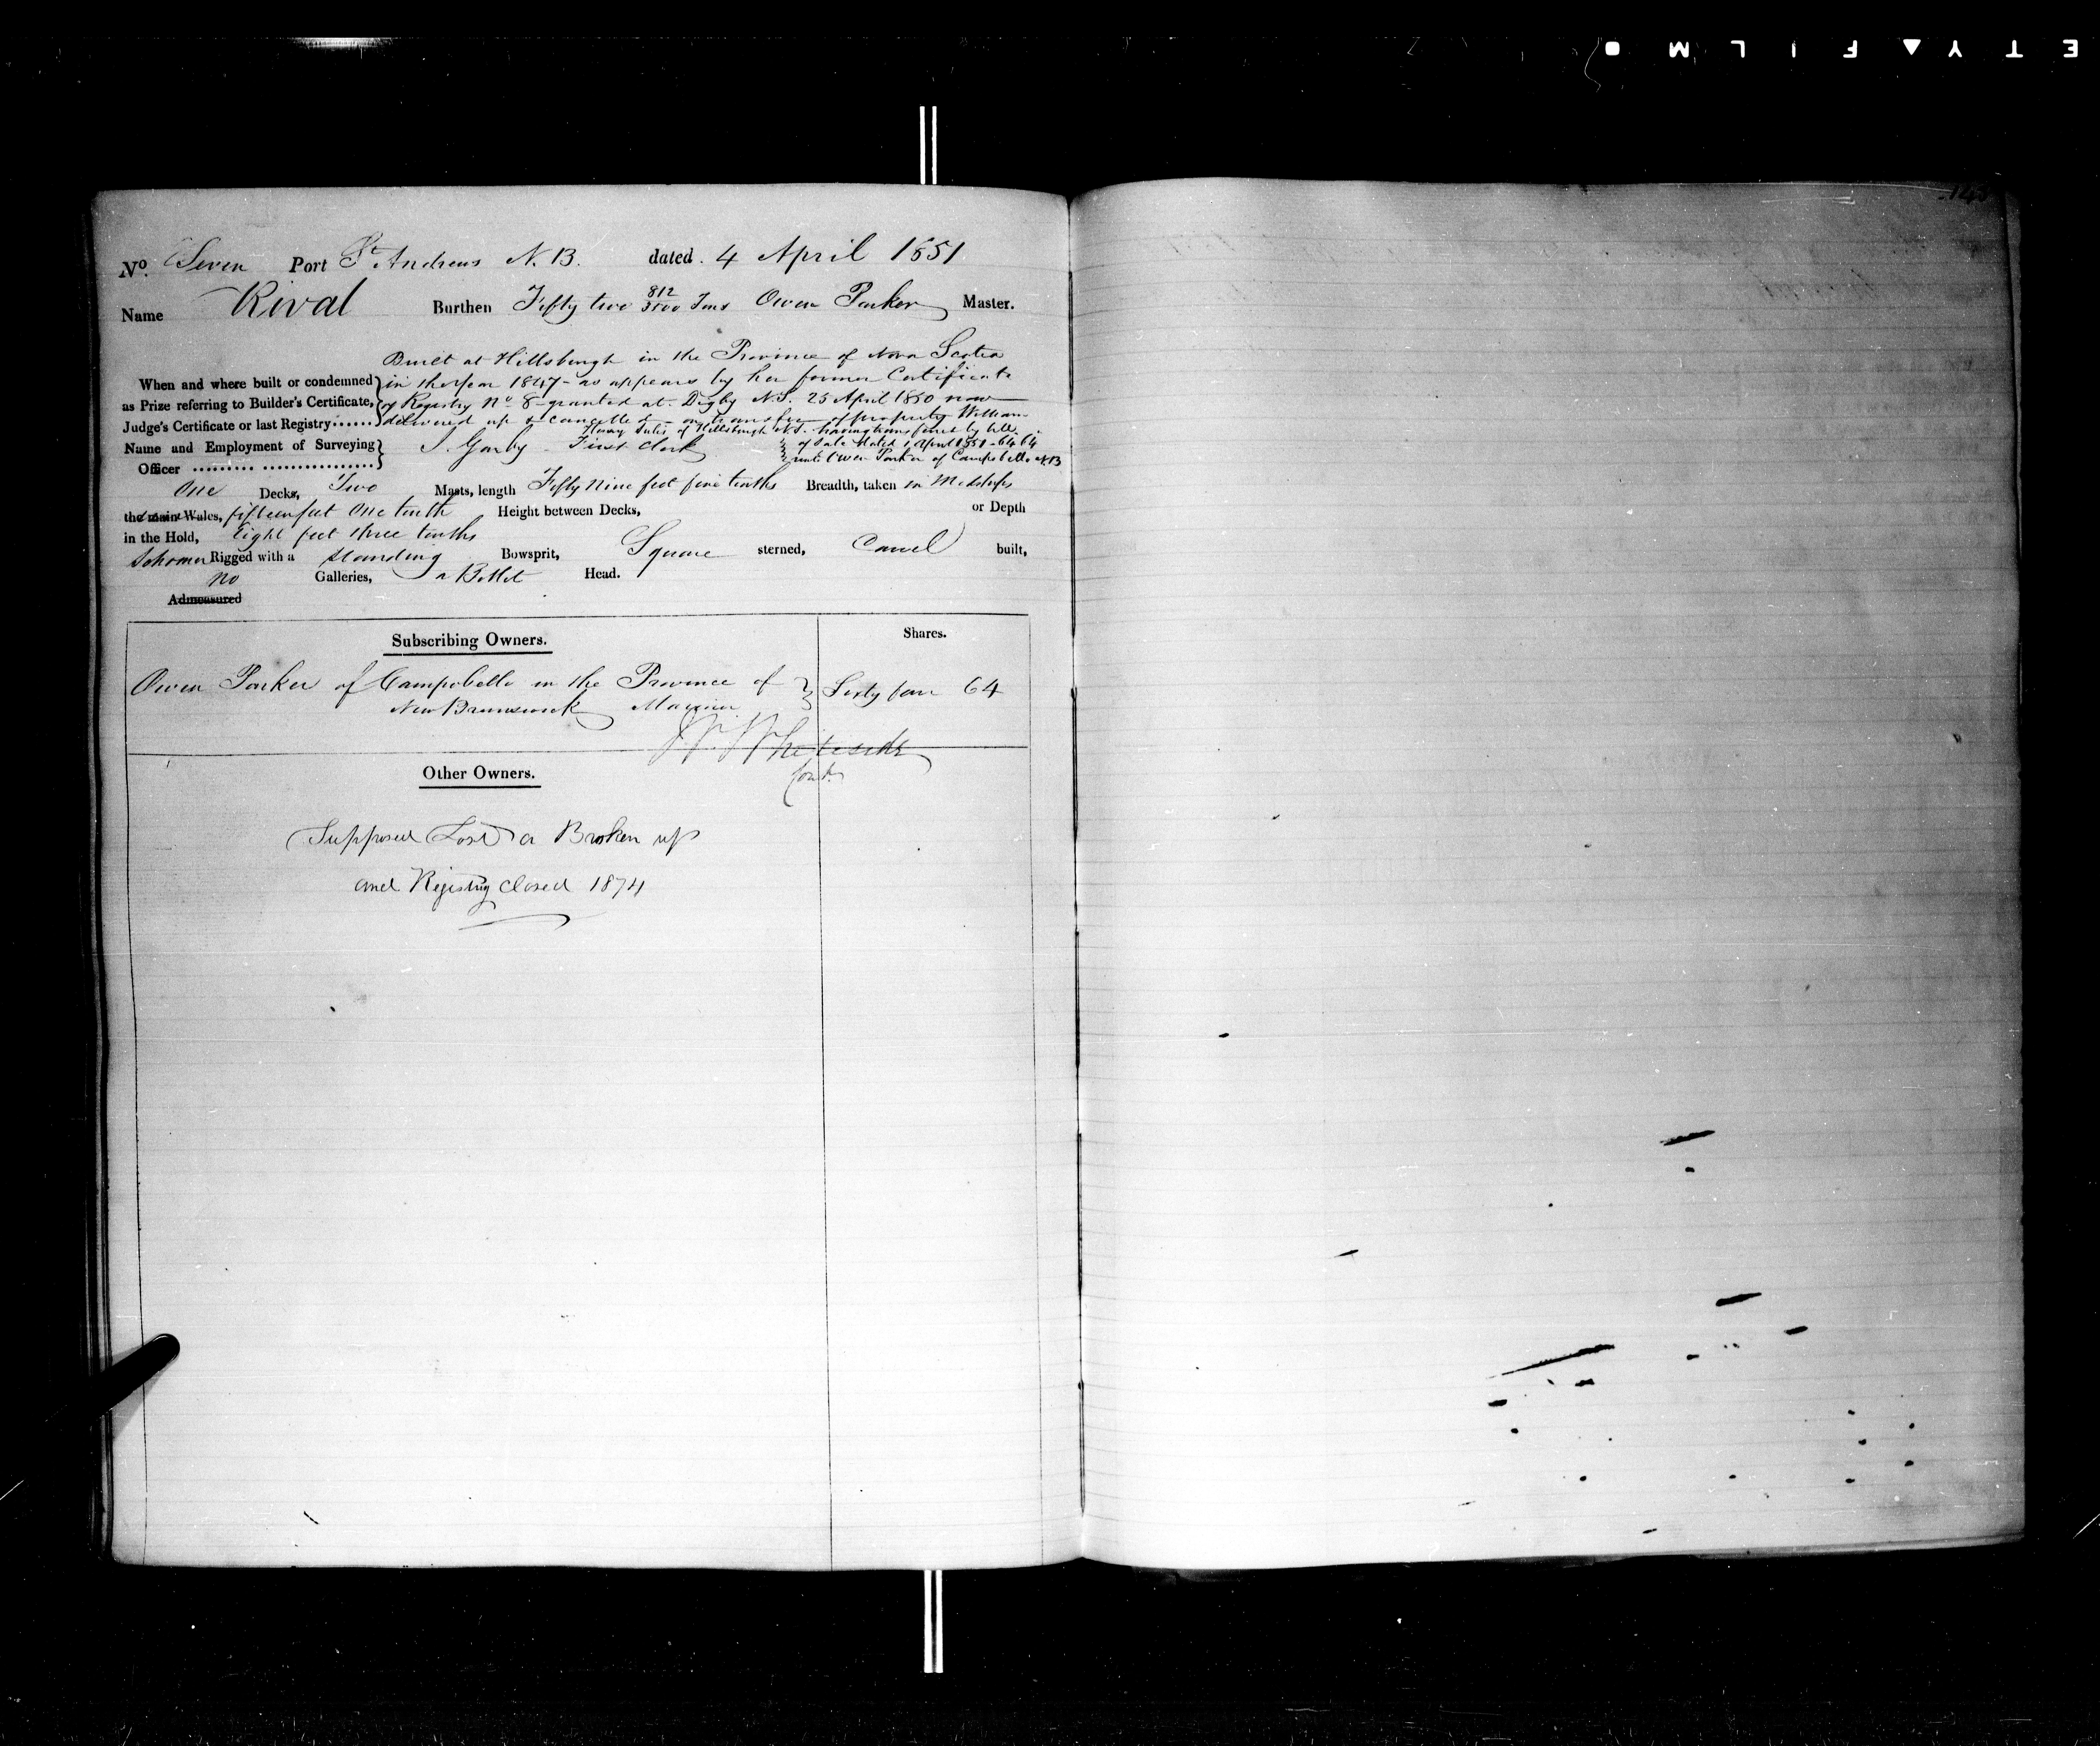 No. Seven Port St Andrews N.B. dated. 4 April 1851
Name Rival Burthen Fifty two 812/3500 Tons Owen Parker Master.
Built at Hillsburgh in the Province of Nova Scotia
When and where built or condemned } in the Year 1847 - as appears by her former Certificate
as Prize referring to Builder's Certificate, of Registry No 8 granted at Digby N.S. 25 April 1850 now
Judge's Certificate or last Registry...... delivered up & cancelled - on transfer of property William
Henry of Hillsburgh N.S. having transferred by bill
Name and Employment of Surveying } First Clerk of Sale dated 1 April 1851 - 64/64
Officer unto Owen Parker of Campobello N.B
One Decks, Two Masts, length Fifty Nine feet five tenths Breadth, taken in Midships
the main Wales, fifteen feet One tenth Height between Decks, or Depth
in the Hold, Eight feet three tenths
Schooner Rigged with a Standing Bowsprit, Square sterned, Carvel built,
No Galleries, a Billet Head.
Admeasured
Subscribing Owners. Shares.
Owen Parker of Campobello in the Province of } Sixty four 64
New Brunswick Mariner
Whiteside
Cont.
Other Owners.
Supposed Lost or Broken up
and Registry closed 1874